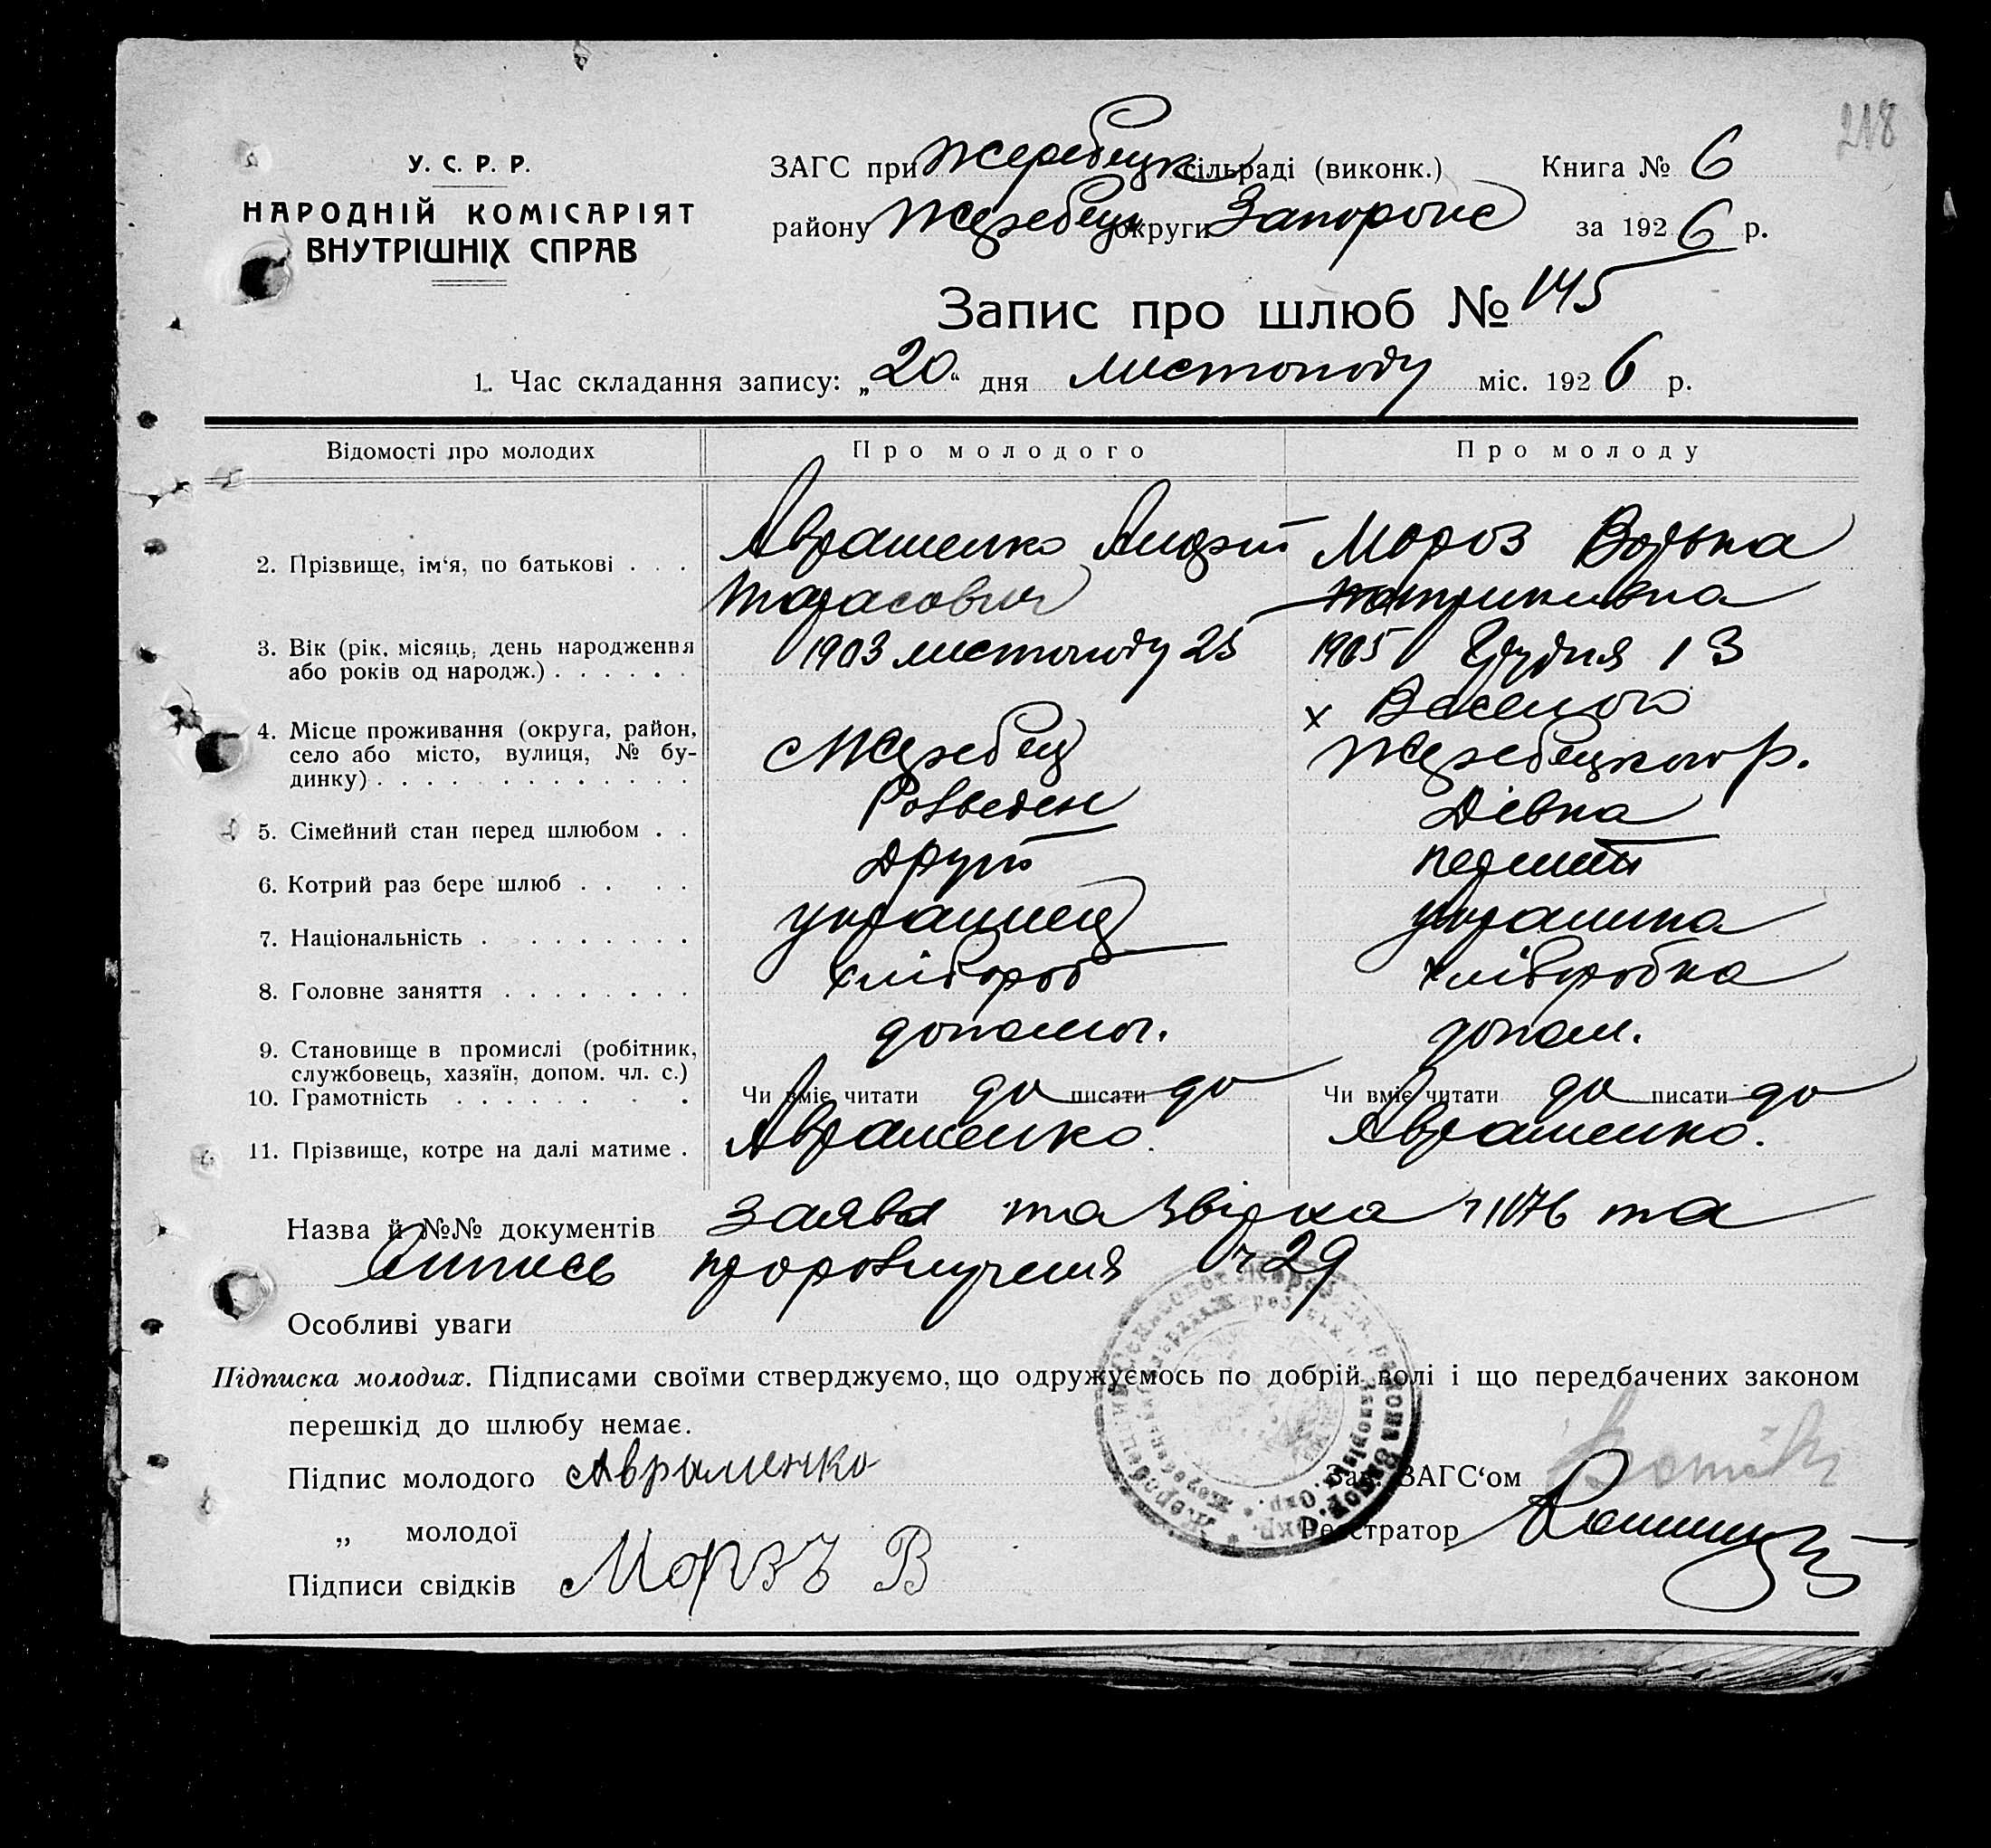 218
У. С. Р. Р.
НАРОДНІЙ КОМІСАРІЯТ
ВНУТРІШНІХ СПРАВ
ЗАГС при Жеребецк сільраді (виконк.) Книга № 6
району Жеребец округи Запоріжс за 1926 р.
Запис про шлюб № 145
1. Час складання запису: „20“ дня листопаду міс. 1926 р.
Відомості про молодих Про молодого Про молоду
2. Прізвище, ім‘я, по батькові . . . Авраменко Андрій Мороз Водька
Тарасович
3. Вік (рік, місяць, день народження
або років од народж.) . . . . . . 1903 листопаду 25 1905 Грудня 13
4. Місце проживання (округа, район,
село або місто, вулиця, № бу-
динку) . . . . . . . . . . . . . с Жеребец х Веселого
Жеребецкого р.
5. Сімейний стан перед шлюбом . . Розведен Дівка
6. Котрий раз бере шлюб . . . . Другий первий
7. Національність . . . . . . . . . українец українка
8. Головне заняття . . . . . . . . хлібороб хліборобка
9. Становище в промислі (робітник,
службовець, хазяїн, допом. чл. с.) допомог. допом.
10. Грамотність . . . . . . . Чи вміє читати до писати до Чи вміє читати до писати до
11. Прізвище, котре на далі матиме . Авраменко. Авраменко.
Назва й №№ документів заява та Звірка 1076 та
Випись про розлучення 29
Особливі уваги
Підписка молодих. Підписами своїми стверджуємо, що одружуємось по добрій волі і що передбачених законом
перешкід до шлюбу немає.
Підпис молодого Авраменко Зав. ЗАГС‘ом
„ молодої Реєстратор
Підписи свідків Морозъ В